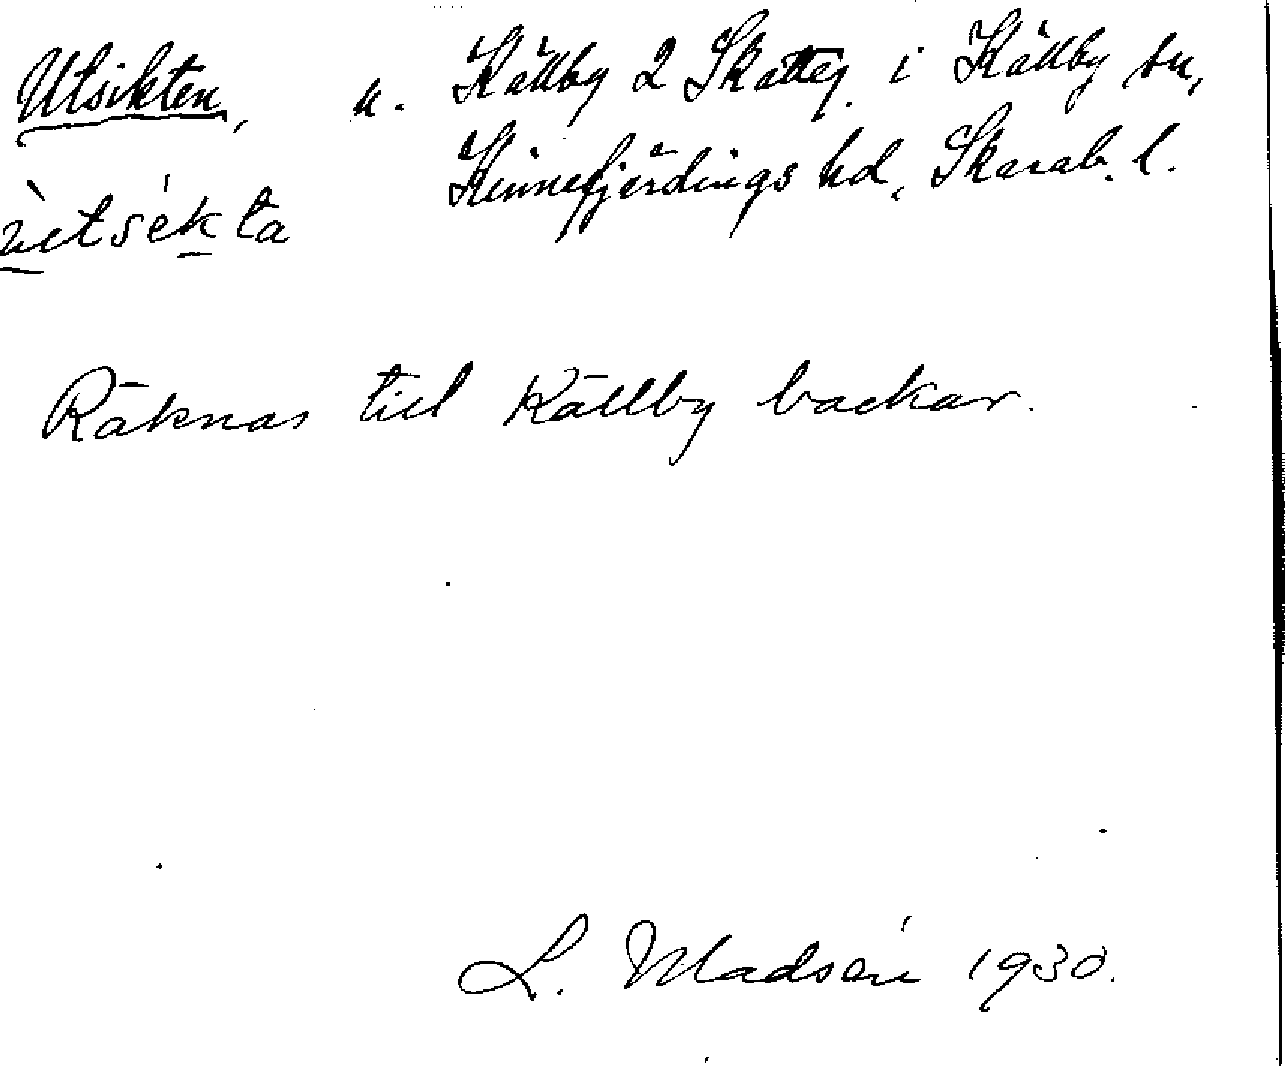 Utsikten, u. Källby 2 Skatteg. i Källby sn,
Kinnefjärdings hd, Skarab. l.
Räknas till Källby backar.
L. Madsén 1930.